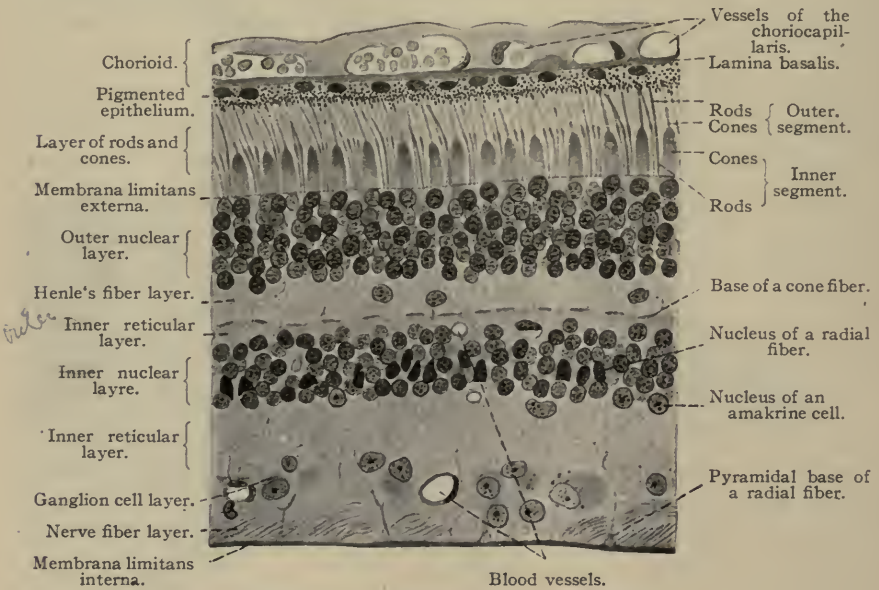 Chorioid.
Pigmented
epithelium.
Layer of rods and
cones.
Membrana limitans
externa.
Outer nuclear
layer.
Henle's fiber layer.
Inner reticular
layer.
Inner nuclear
layre.
Inner reticular
layer.
Ganglion cell layer.
Nerve fiber layer.
Membrana limitans
interna.
Vessels of the
choriocapil-
laris.
Lamina basalis.
Rods
Cones
Outer
segment.
Cones
Rods
Inner
segment.
Base of a cone fiber.
Nucleus of a radial
fiber.
Nucleus of an
amakrine cell.
Pyramidal base of
a radial fiber.
Blood vessels.